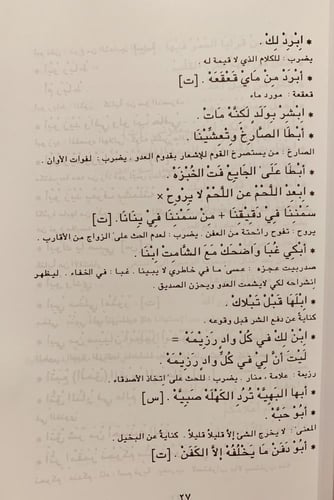 * ابْرِدْ لِكْ .
يضرب : للكلام الذي لا قيمة له .
* أَبْرَدْ مِنْ مَايْ قَعْقَعَهْ . [ت]
قعقعة : مورد ماء .
* ابْشِرْ بِوَلَدِ لَكِنَّهْ مَاتْ .
* أَبْطَا الصَّارِخْ وِتْعِشَّيْنَا .
الصارخ : من يستصرخ القوم للإشعار بقدوم العدو . يضرب : لفوات الأوان .
* أَبْطَا عَلَى الْجَايِعْ فَتّ الْخُبْزَهْ .
* ابْعِدْ اللَّحْمْ عن اللَّحْمْ لا يِروْحْ ×
سَمْنِنَا فِيْ دِقِيْقِنَا + مِنْ سَمْنِنَا فِيْ بِنَانَا. [ت]
يروح : تفوح رائحته من العفن . يضرب : لعدم الحث على الزواج من الأقارب .
* أَبْكِي غَبَا وَاضْحَكْ مَعَ الشَّامتْ ابْتَا .
صدربيت عجزه : عسى ما في خاطري لا يبينا . غبا : في الخفاء . ليظهر
إنشراحه لكي لايشمت العدو ويحزن الصديق .
* ابْلَهَا قَبْلْ تَبْلاكْ .
كناية عن دفع الشر قبل وقوعه .
* ابْنِ لِكْ فِي كْلْ وَادِ رَزِيْمَهْ =
لَيْتَ أنَّ لِيْ فِي كُلّ وَادِ رَزِيْمَهْ.
رزيمة : علامة ، منار . يضرب : للحث على اتخاذ الأصدقاء .
* أَبها الْبَهِيَّهْ تْرُدّ الْكَهْلَهْ صَبِيَّهْ . [س]
* أَبُوْ حَبَّهْ .
المعنى: لا يخرج الشئ إلا قليلاً قليلاً . كناية عن البخيل .
* أَبُوْ دَفَنْ مَا يَخْلُفَهْ إلاَّ الْكَفَنْ . [ت]
٢٧